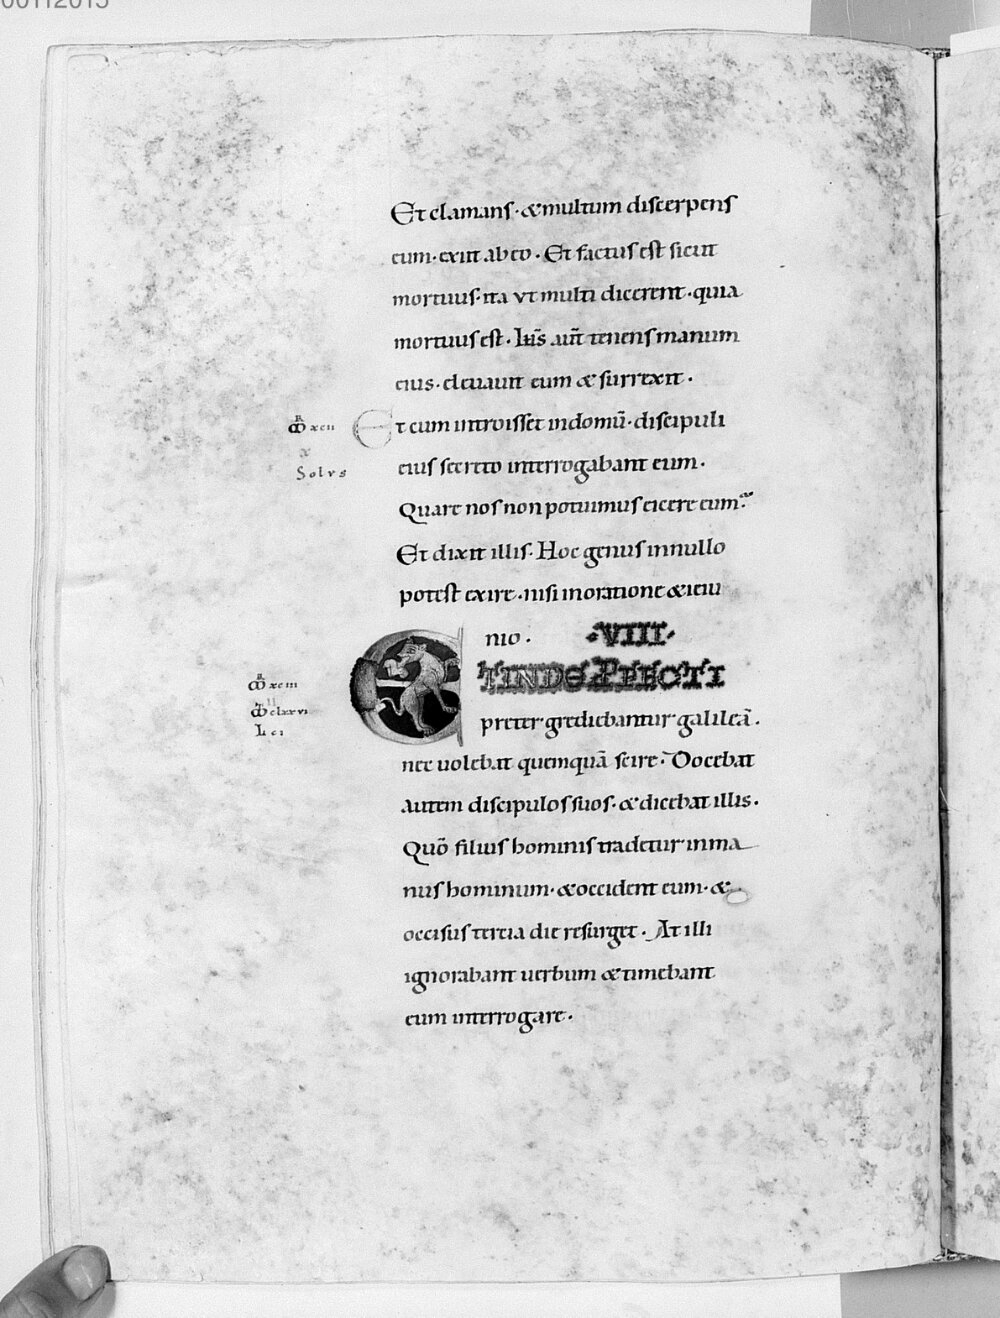 Et clamans · & multum discerpens
eum · exiit ab eo · Et factus est sicut
mortuus · ita vt multi dicerent · quia
mortuus est · Ihs̄ aut̄ tenens manum
eius · eleuauit eum & surrexit ·
M̄R xcii
x
Solvs
Et cum introisset in domū · discipuli
eius secreto interrogabant eum ·
Quare nos non potuimus eicere eum?
Et dixit illis · Hoc genus in nullo
potest exire · nisi in oratione & ieiu
nio · ·VIII·
M̄R xciii
M̄T clxxvi
L ci
ET INDE PROFECTI
preter grediebantur galileā ·
nec uolebat quemquā scire · Docebat
autem discipulos suos · & dicebat illis ·
Quō filius hominis tradetur in ma
nus hominum · & occident eum · &
occisus tertia die resurget · At illi
ignorabant uerbum & timebant
eum interrogare ·